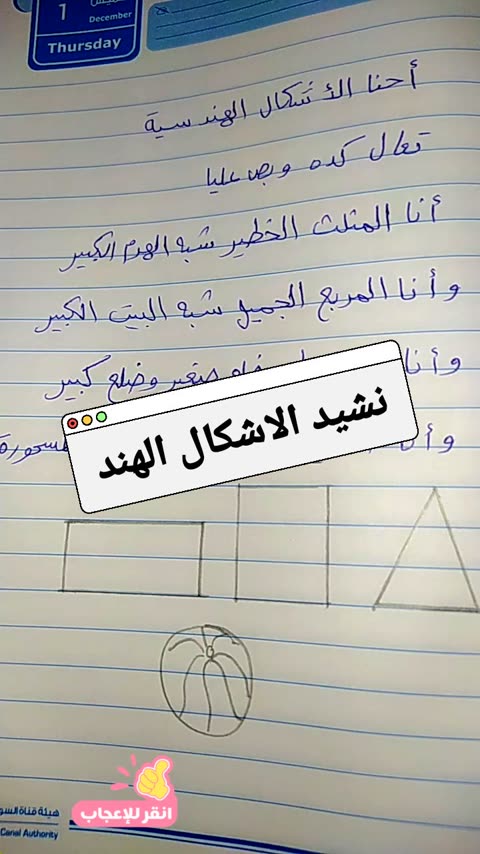 1
December
Thursday
أحنا الأشكال الهندسية
تعال كده وبص عليا
أنا المثلث الخطير شبه الهرم الكبير
وأنا المربع الجميل شبه البيت الكبير
وأنا صغير وضلع كبير
وأنا المسحورة
نشيد الاشكال الهند
انقر للإعجاب
هيئة قناة السو
Canal Authority